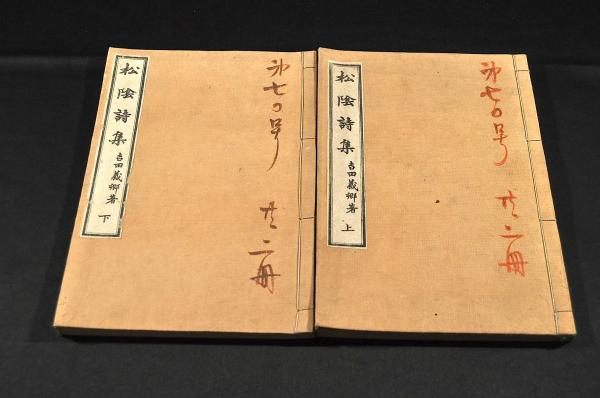 第七〇号 共二冊
松陰詩集 吉田義卿著 上
第七〇号 共二冊
松陰詩集 吉田義卿著 下